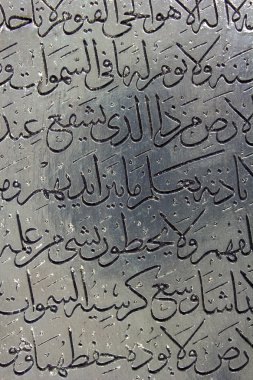 الله لا إله إلا هو الحي القيوم لا تأخذ
سنة ولا نوم له ما في السموات و
الأرض من ذا الذي يشفع عند
إلا بإذنه يعلم ما بين أيديهم وم
خلفهم ولا يحيطون بشيء من علمه
بما شاء وسع كرسيه السموات
الأرض ولا يؤده حفظهما وهو